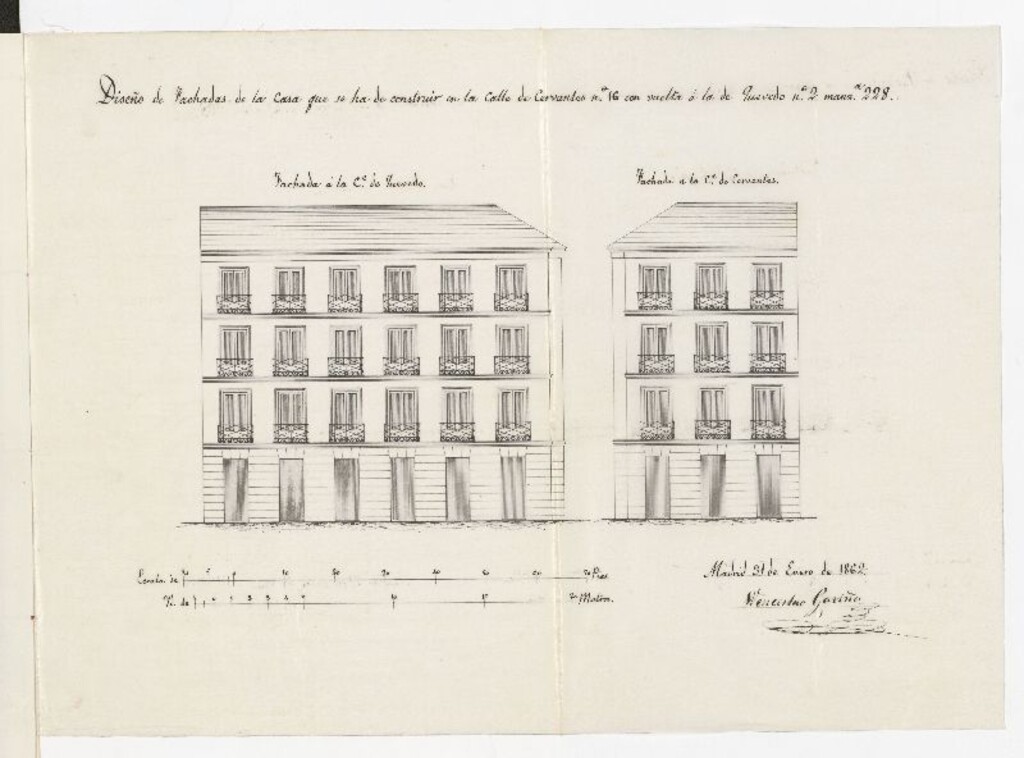 Diseño de Fachadas de la Casa que se ha de construir en la Calle de Cervantes n.º 16 con vuelta á la de Quevedo n.º 2 manz.ª 228.
Fachada á la C.e de Quevedo.
Fachada a la C.e de Cervantes.
Escala de
Pies
Yd. de
Metros.
Madrid 31 de Enero de 1862.
Wenceslao Gaviña